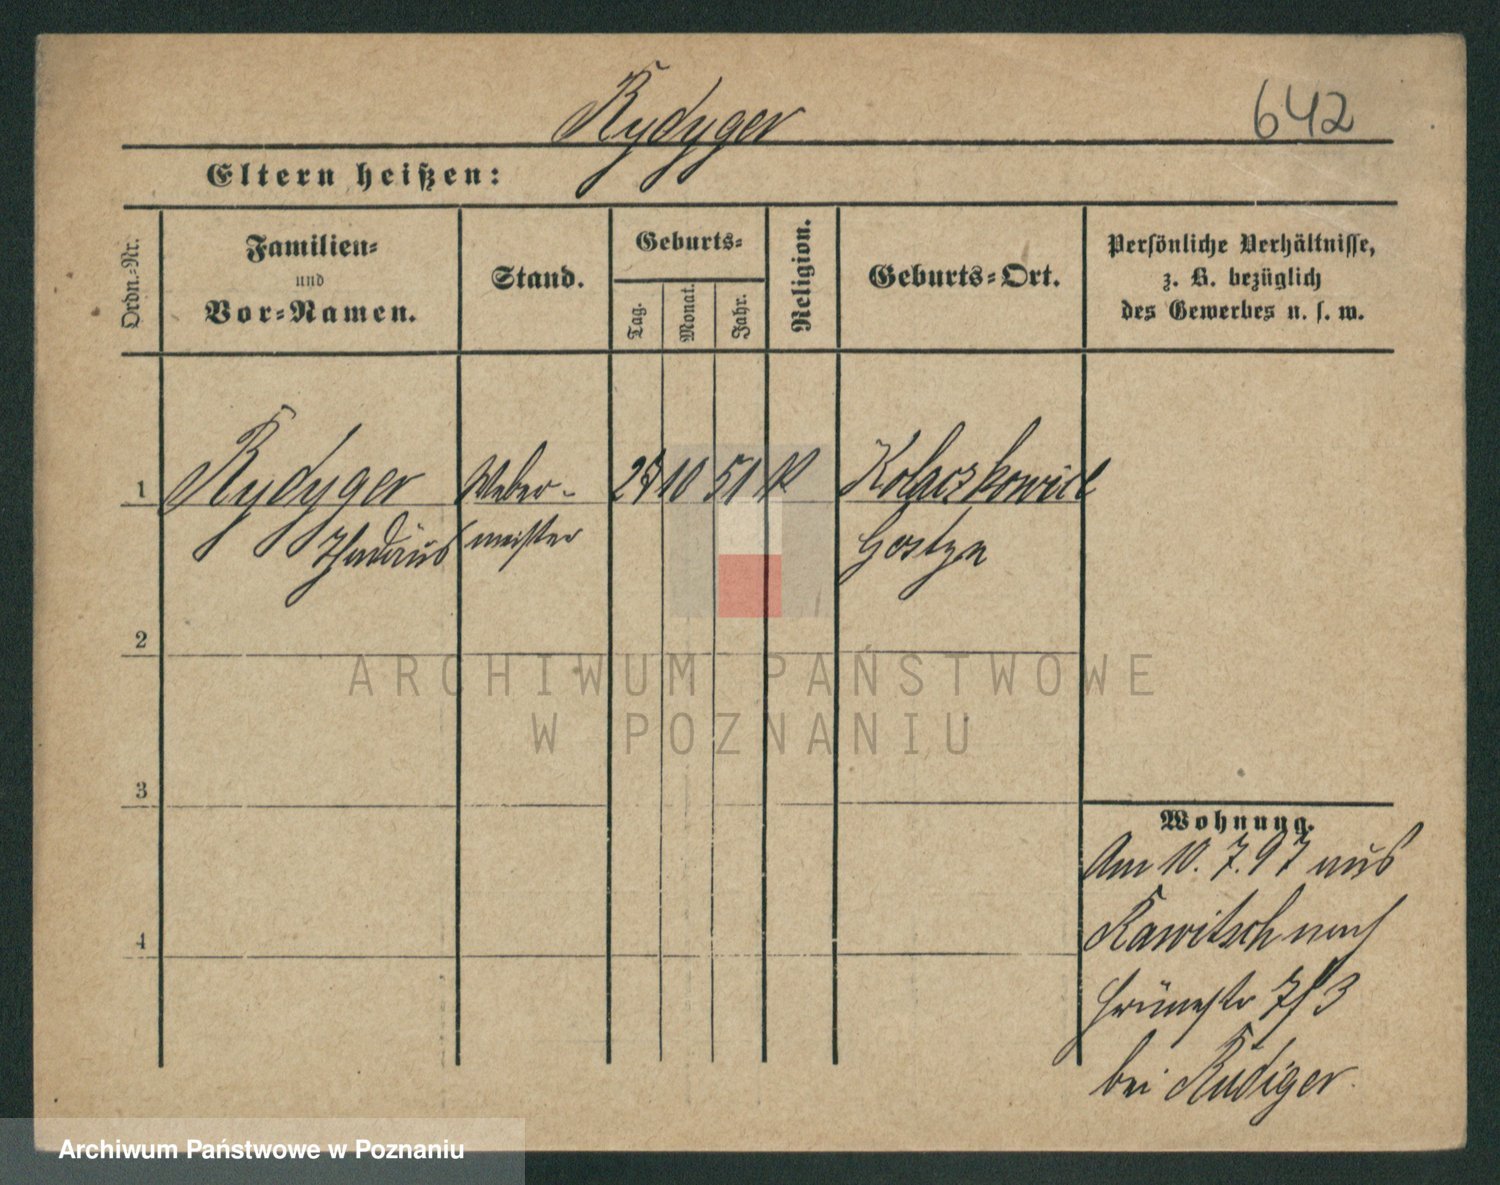 Rydyger
642
Eltern heißen:
Ordn.-Nr.
Familien-
und
Vor-Namen.
Stand.
Geburts-
Tag.
Monat.
Jahr.
Religion.
Geburts-Ort.
Persönliche Verhältnisse,
z. B. bezüglich
des Gewerbes u. s. w.
1 Rydyger Weber- 10 51 K Kolaczkowice
Thadäus meister Gostyn
2
ARCHIWUM PAŃSTWOWE
W POZNANIU
3
Wohnung.
Am 10. 7. 97 aus
4
Rawitsch nach
Grünestr 7/3
bei Rüdiger.
Archiwum Państwowe w Poznaniu